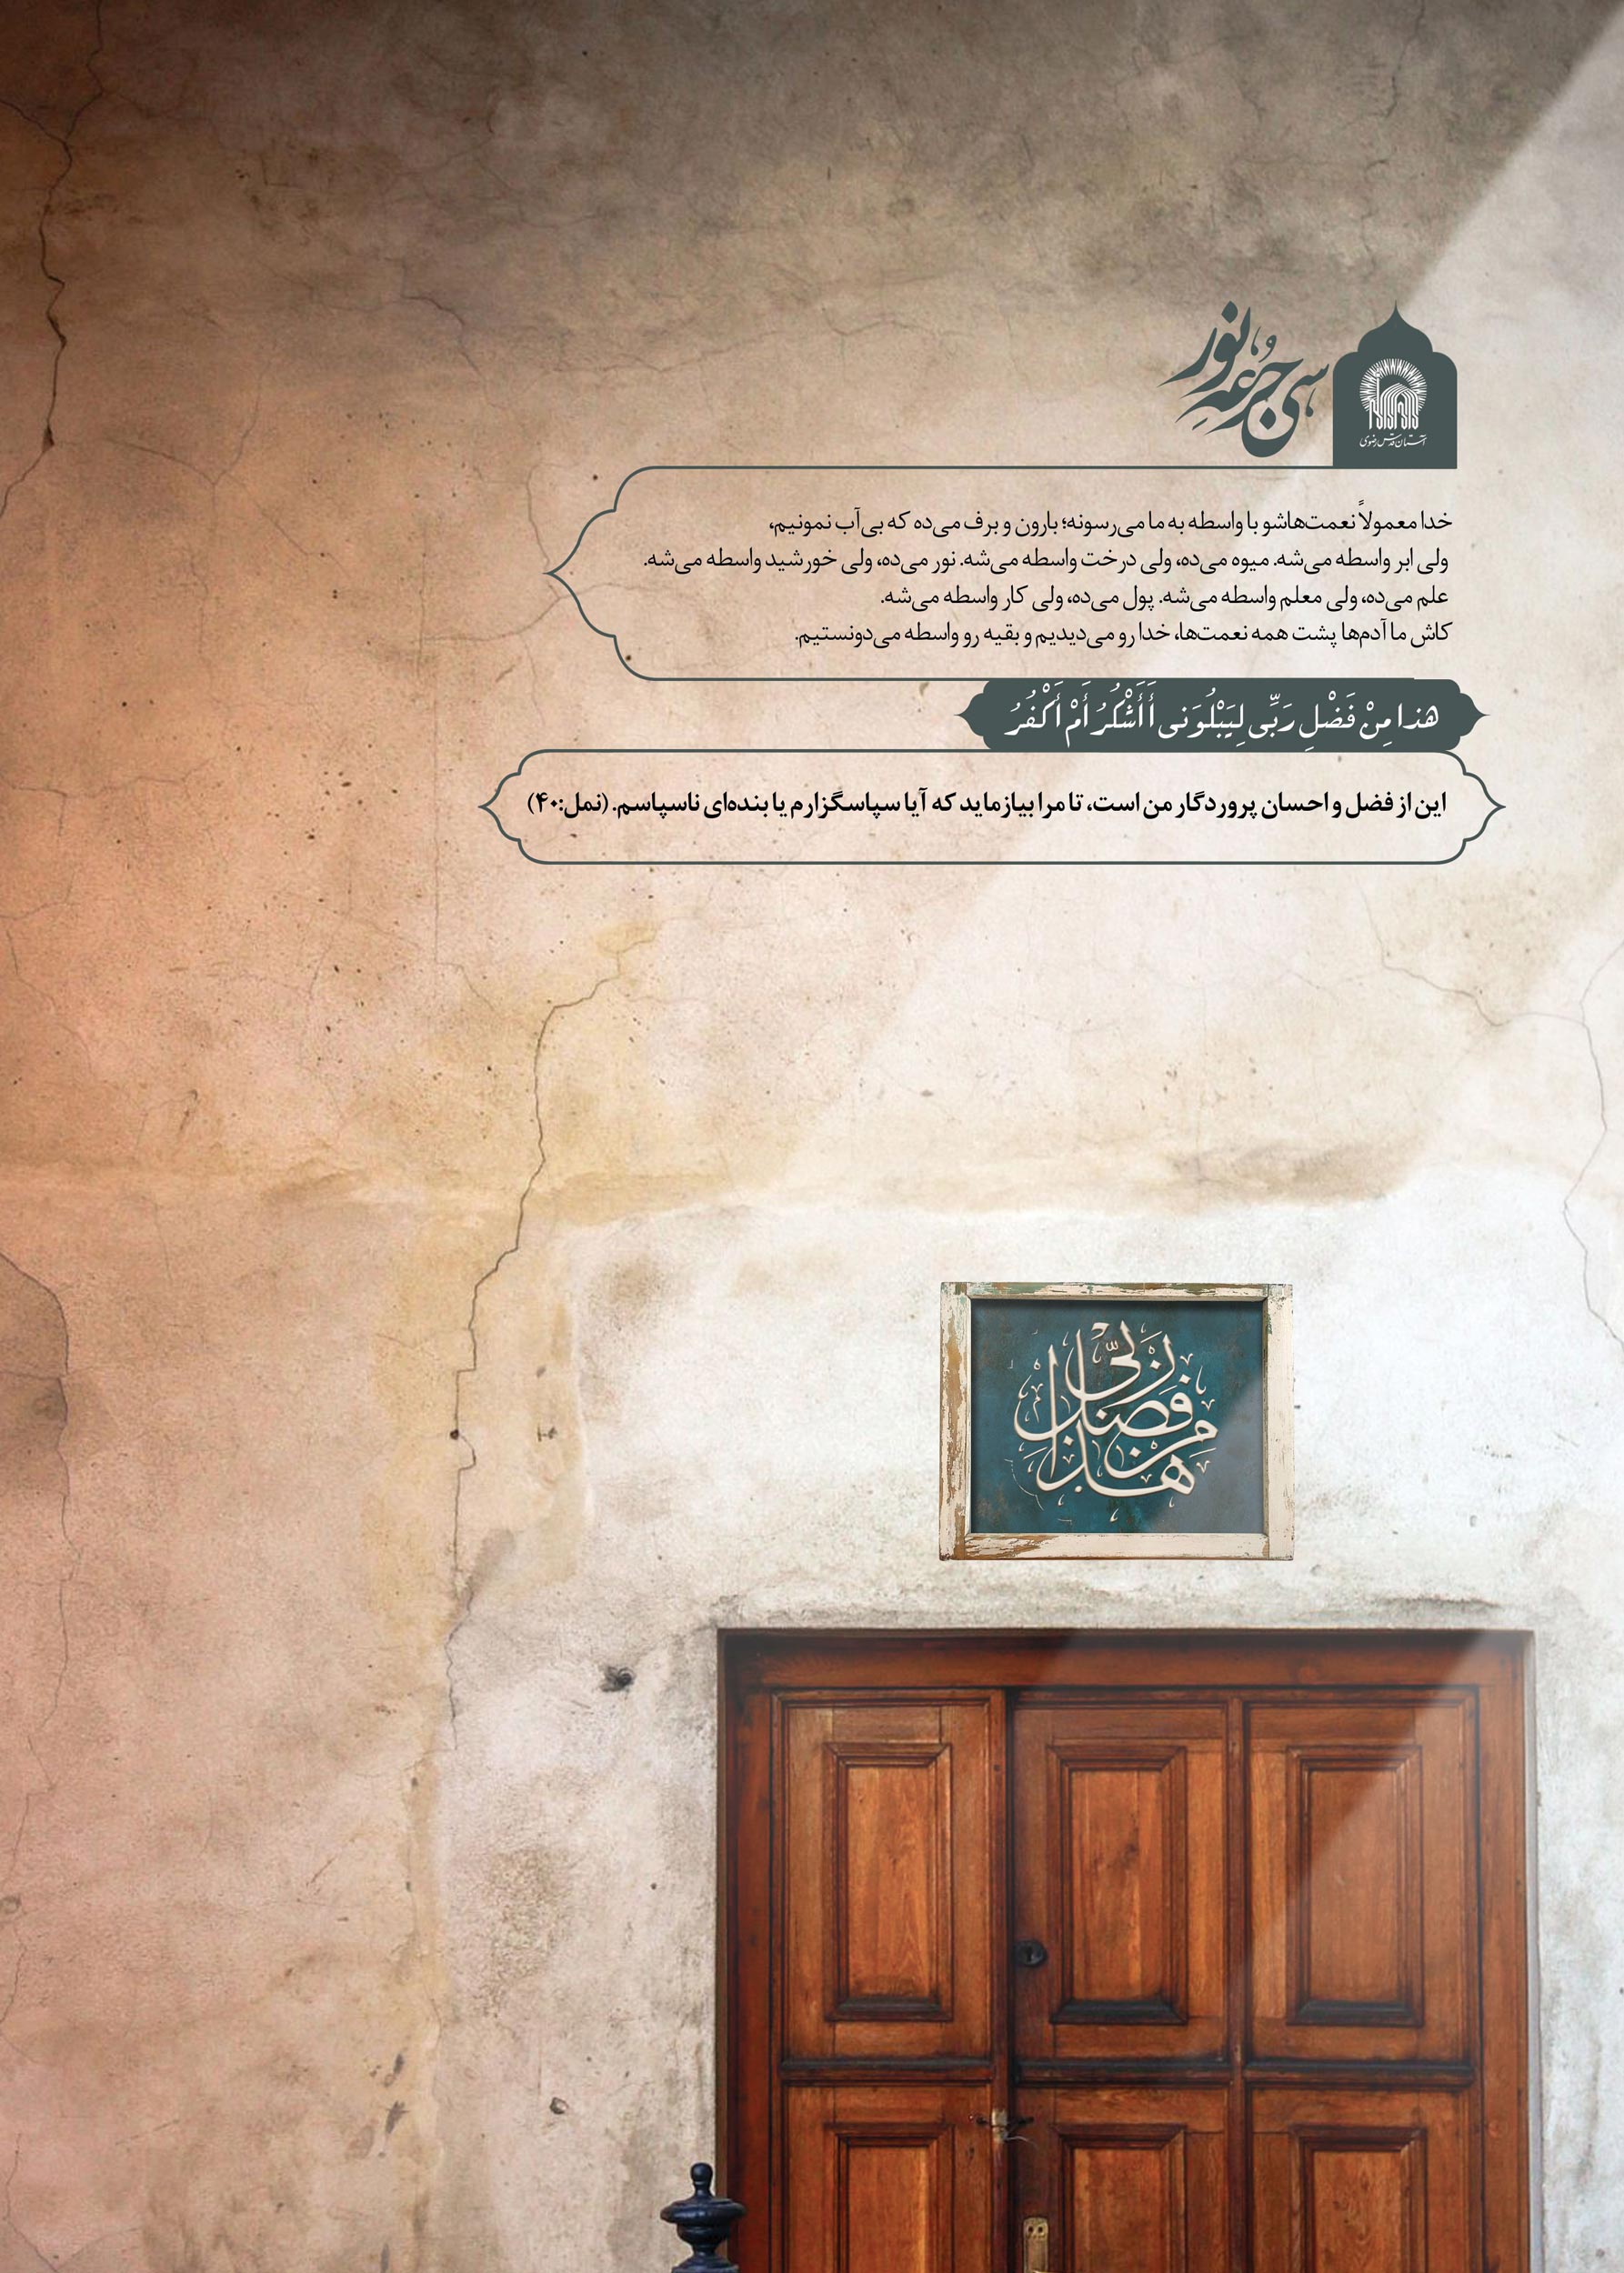 سی جرعه نور
آستان قدس رضوی
خدا معمولاً نعمت‌هاشو با واسطه به ما می‌رسونه؛ بارون و برف می‌ده که بی‌آب نمونیم،
ولی ابر واسطه می‌شه. میوه می‌ده، ولی درخت واسطه می‌شه. نور می‌ده، ولی خورشید واسطه می‌شه.
علم می‌ده، ولی معلم واسطه می‌شه. پول می‌ده، ولی کار واسطه می‌شه.
کاش ما آدم‌ها پشت همه نعمت‌ها، خدا رو می‌دیدیم و بقیه رو واسطه می‌دونستیم.
هذا مِنْ فَضْلِ رَبِّی لِیَبْلُوَنی أَأَشْکُرُ أَمْ أَکْفُرُ
این از فضل و احسان پروردگار من است، تا مرا بیازماید که آیا سپاسگزارم یا بنده‌ای ناسپاسم. (نمل:۴۰)
هذا من فضل ربی